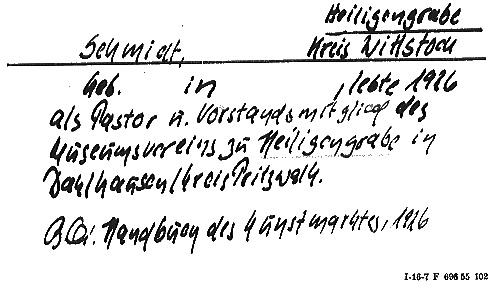 Heiligengrabe
Schmidt, Kreis Wittstock
Geb. in , lebte 1926
als Pastor u. Vorstandsmitglied des
Museumsvereins zu Heiligengrabe in
Dahlhausen/Kreis Pritzwalk.
Qu: Handbuch des Kunstmarktes, 1926
I-16-7 F 696 55 102